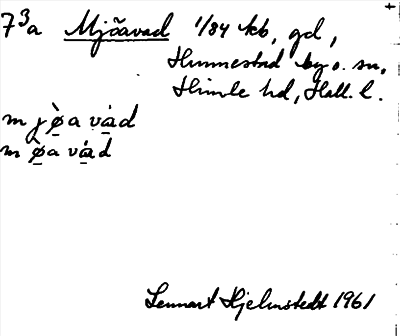 7³a Mjöavad 1/84 kb, gd,
Hunnestad by o. sn,
Himle hd, Hall. l.
m j ø̀ a v á d
m ø̀ a v á d
Lennart Hjelmstedt 1961